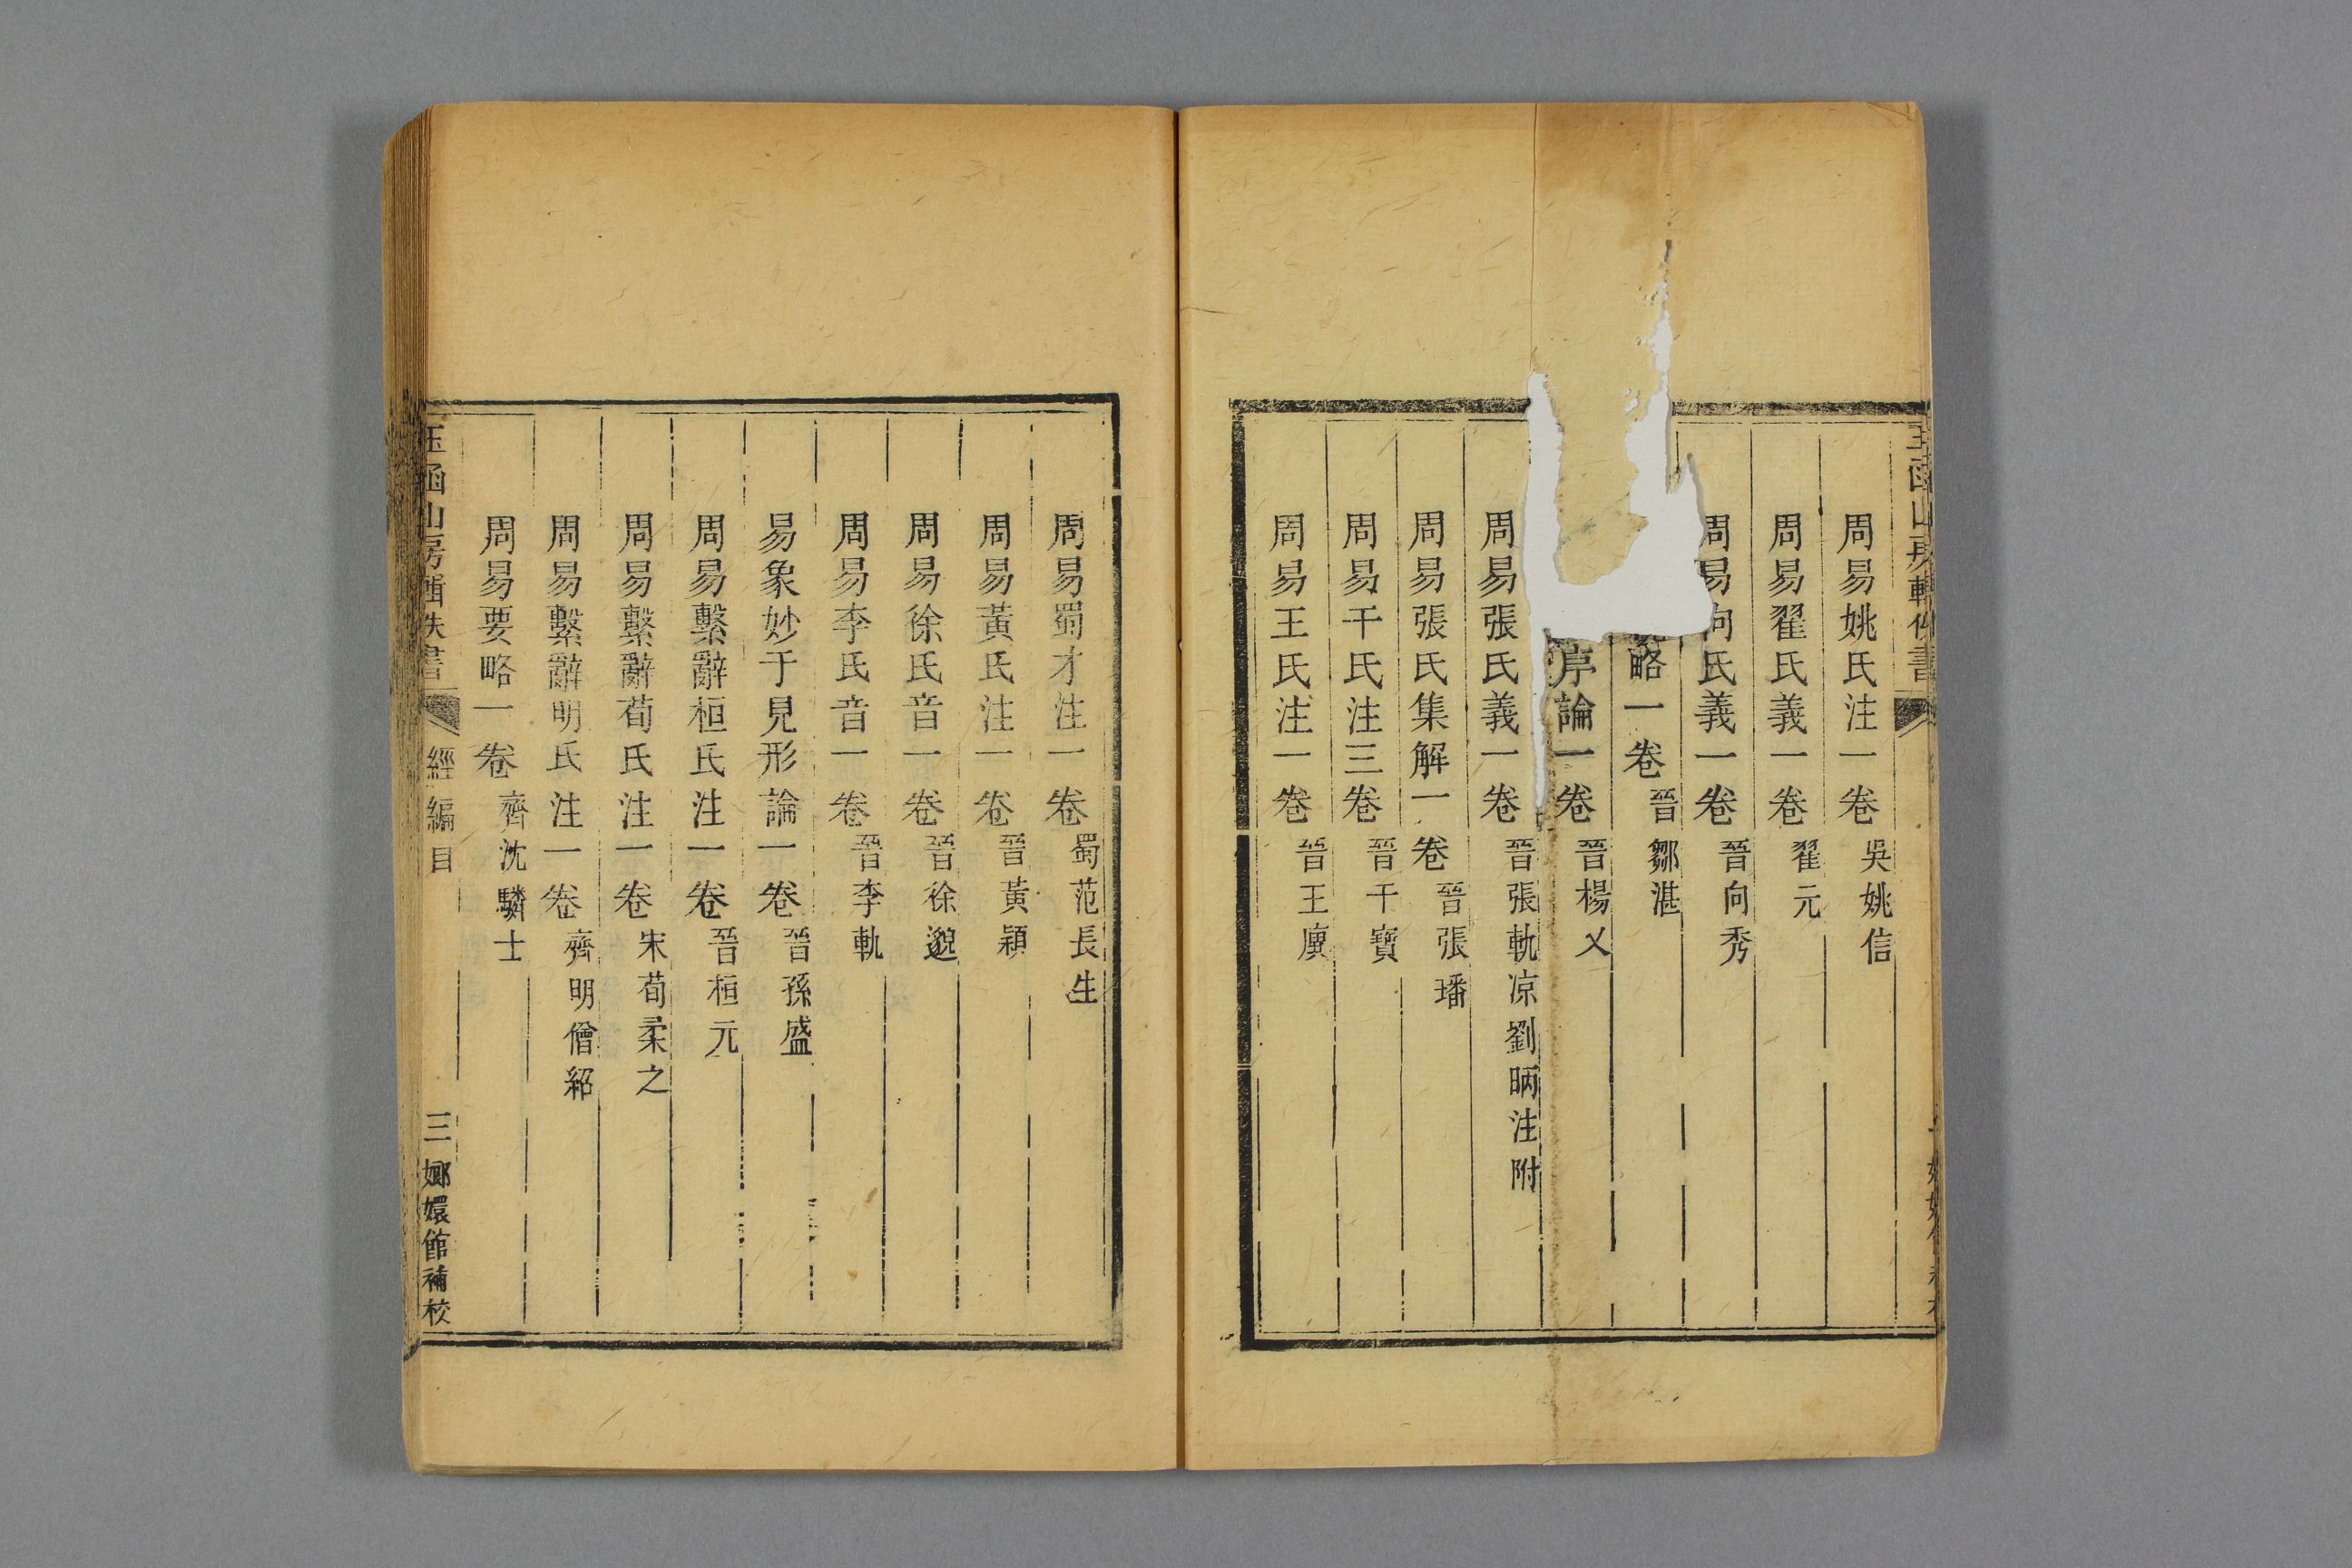 周易姚氏注一卷 吳姚信
周易翟氏義一卷 翟元
周易向氏義一卷 晉向秀
略一卷 晉鄒湛
序論一卷 晉楊乂
周易張氏義一卷 晉張軌凉劉昞注附
周易張氏集解一卷 晉張璠
周易干氏注三卷 晉干寶
周易王氏注一卷 晉王廙
周易蜀才注一卷 蜀范長生
周易黃氏注一卷 晉黃穎
周易徐氏音一卷 晉徐邈
周易李氏音一卷 晉李軌
易象妙于見形論一卷 晉孫盛
周易繫辭桓氏注一卷 晉桓元
周易繫辭荀氏注一卷 宋荀柔之
周易繫辭明氏注一卷 齊明僧紹
周易要略一卷 齊沈驎士
玉函山房輯佚書 經編目 三 嫏嬛館補校